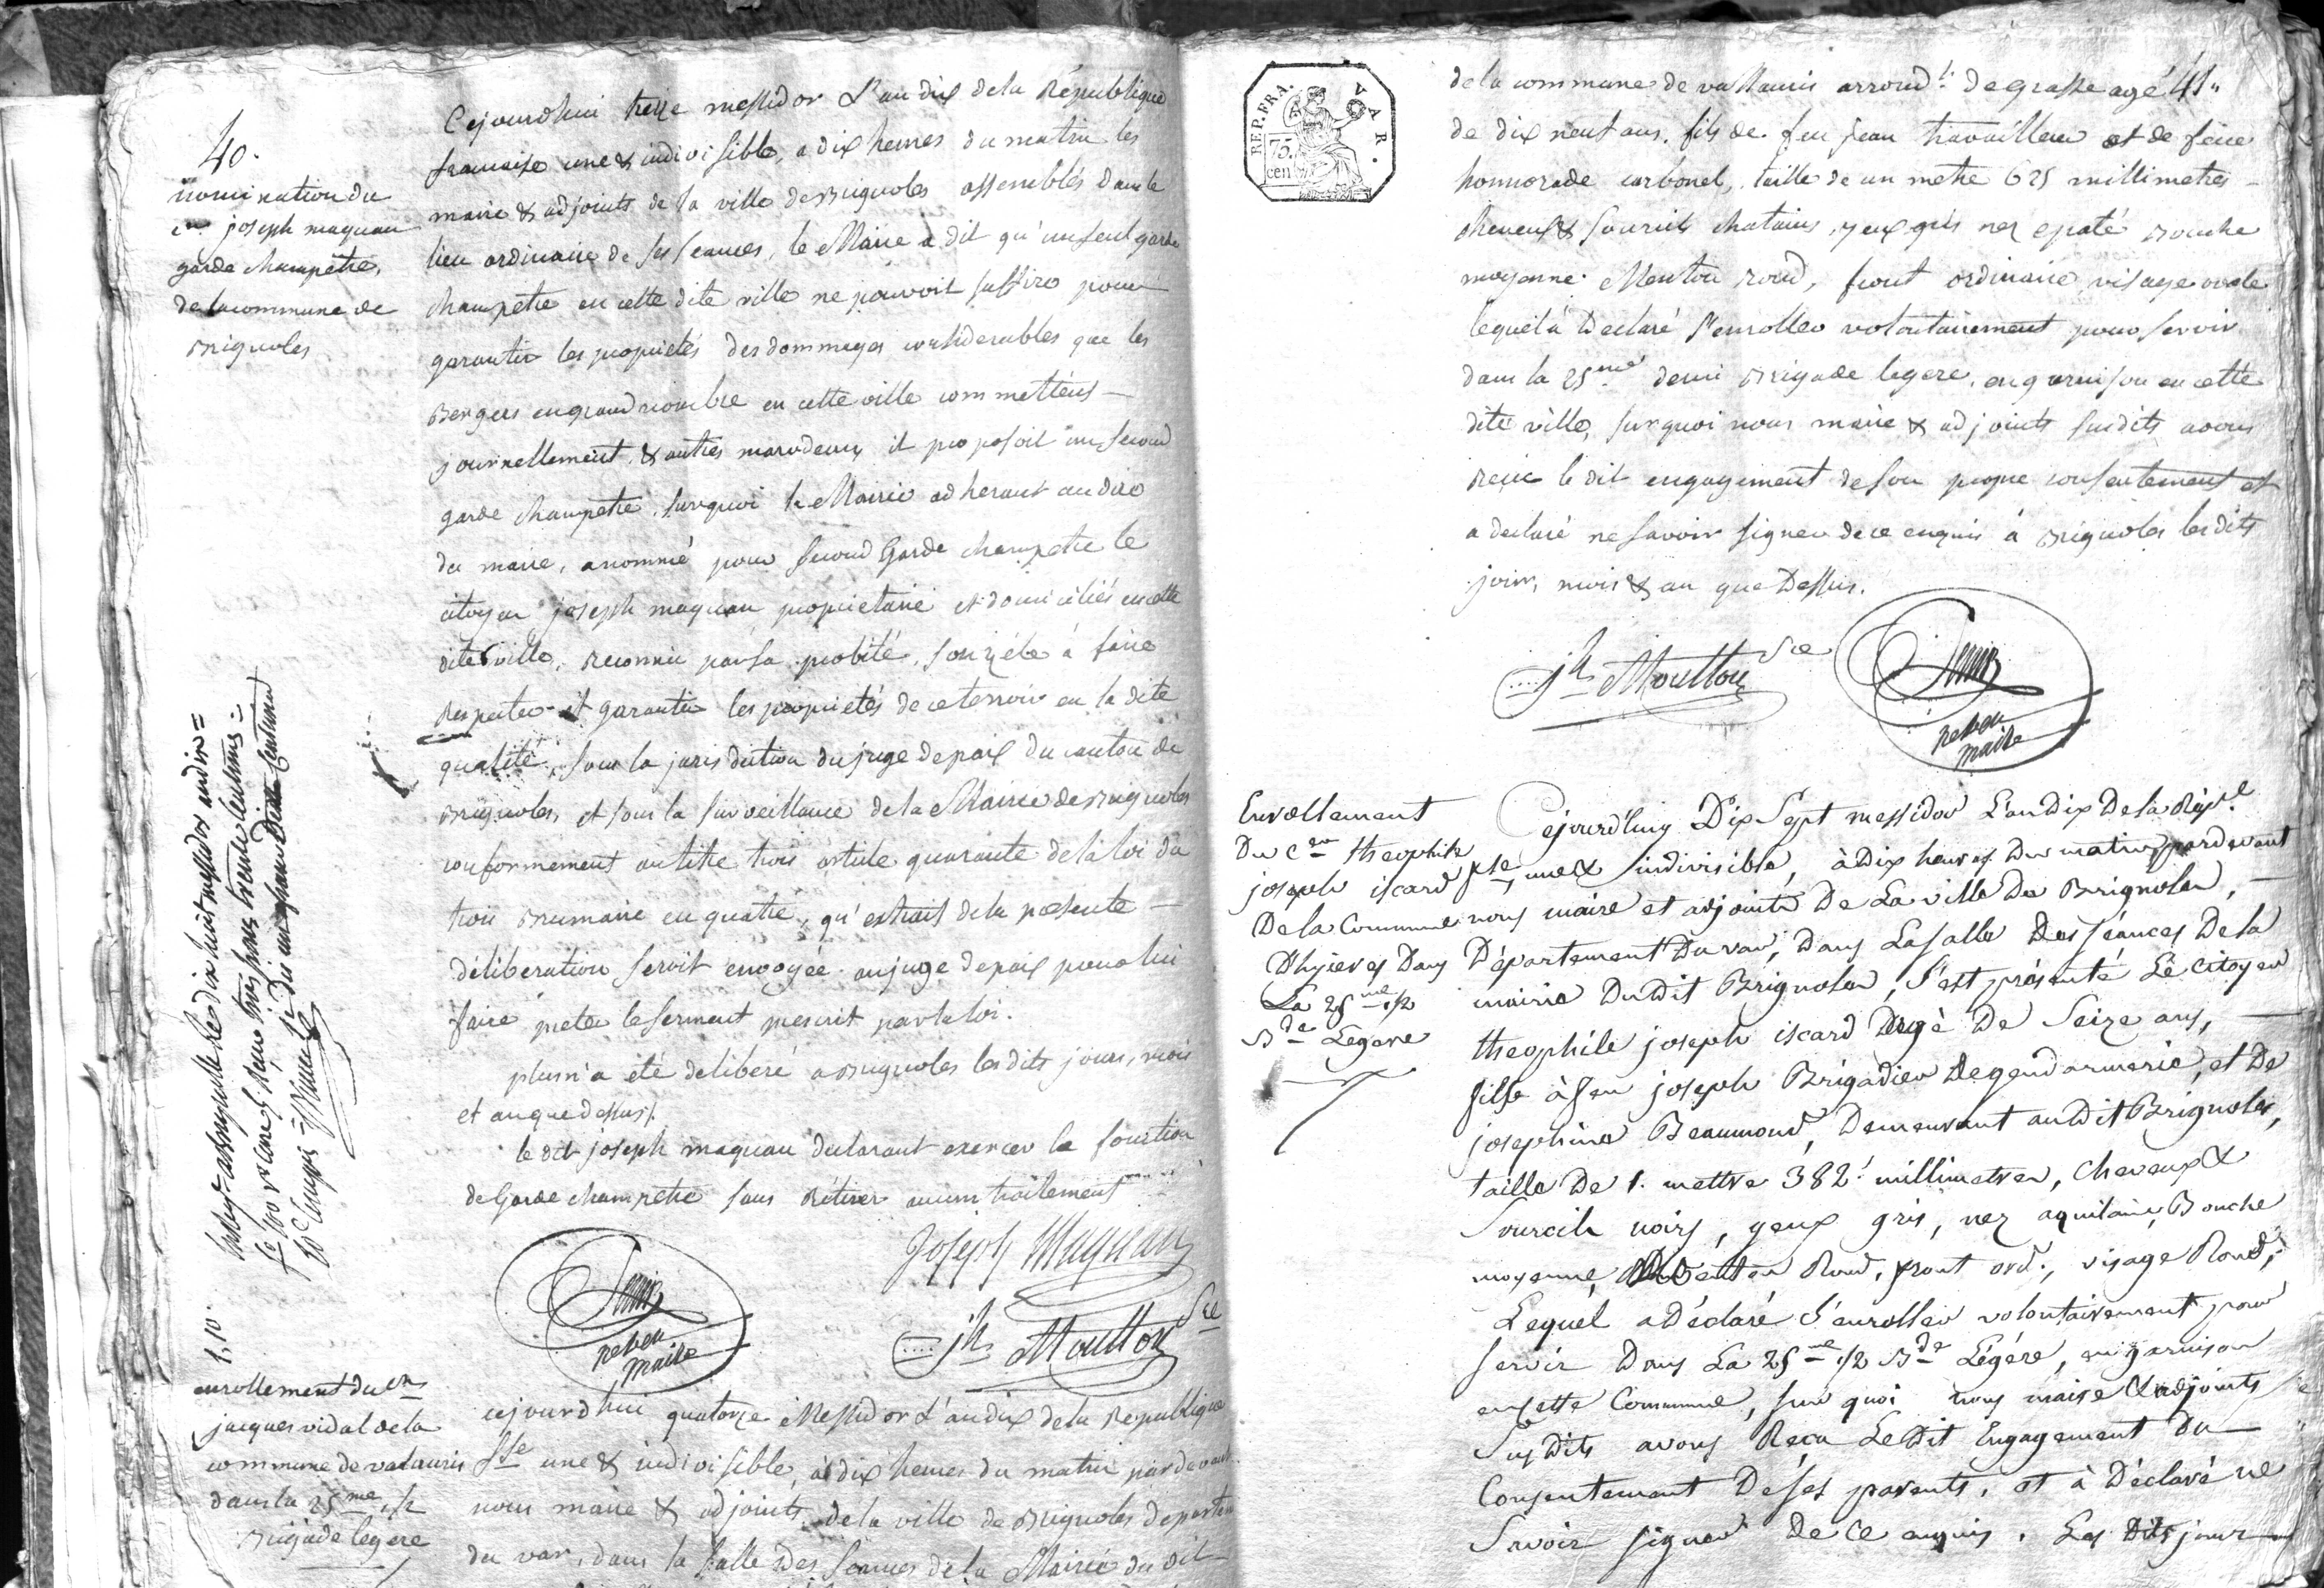 40.
nomination du
c.en joseph maquan
garde champetre,
de la commune de
Brignoles
Cejourdhui treize messidor L'an dix de la République
francaise une & indivisible, a dix heures du matin les
maire & adjoints de la ville de Brignoles assemblés dans le
lieu ordinaire de ses seances, le Maire a dit qu'un seul garde
champetre en cette dite ville ne pouvoit suffire pour
garantir les propriétés des dommages considerables que les
Bergers en grand nombre en cette ville commettens
journellement, & autres maraudeurs, il proposoit un second
garde champetre, surquoi la Mairie adherant au dire
du maire, a nommé pour second Garde champetre le
citoyen joseph maquan proprietaire et domiciliés en cette
dite ville, reconnu par sa probité, son zéle à faire
respecter et garantir les propriétés de ce terroir en la dite
qualité, sous la jurisdiction du juge de paix du canton de
Brignoles, et sous la surveillance de la Mairie de Brignoles
conformement au titre trois article quarante de la loi du
trois Brumaire en quatre, qu'extrait de la presente
déliberation seroit envoyée au juge de paix pour lui
faire preter le serment prescrit par la loi.
plus n'a été deliberé a Brignoles les dits jours, mois
et an que dessus/.
le dit joseph maquan declarant exercer la fonction
de Garde champetre sans retirer aucun traitement
Joseph Maquan
reben
maire
jh Moutton Sre
le dix huit messidor an dix =
trois francs trente centimes =
1,,10
enrollement du cen
jacques vidal de la
commune de valauris
dans la 25me 1/2
Brigade legere
cejourdhui quatorze Messidor L'an dix de la Republique
fse une & indivisible, à dix heures du matin pardevant
nous maire & adjoints, de la ville de Brignoles departem
du var, dans la salle des seances de la Mairie du dit
REP. FRA. VAR.
75.
cen
41
de la commune de vallauris arrond.t de grasse agé
de dix neuf ans, fils de feu jean travailleur et de feüe
honnorade carbonel, taille de un metre 625 millimetres
cheveux & sourcils chatains, yeux gris nez epaté Bouche
moyenne Menton rond, front ordinaire visage ovale
lequel a Declaré s'enroller volontairement pour servir
dans la 25me demi Brigade legere, en garnison en cette
dite ville, surquoi nous maire & adjoints susdits avons
recu le dit engagement de son propre consentement et
a declaré ne savoir signer de ce enquis à Brignoles les dits
jour, mois & an que Dessus.
jh Moutton Sre
reben
maire
Enrollement
Du cen theophile
joseph iscard
De la Commune
D'hyieres Dans
La 25me 1/2
Bde Legere
Cejourd'huy Dix Sept messidor L'an Dix De la Rép.e
fse, une & indivisible, à Dix heures Du matin, pardevant
nous maire et adjoints De La ville De Brignoles,
Département Du var, Dans La salle Des séances De la
mairie Du dit Brignoles, s'est présenté Le Citoyen
theophile joseph iscard agé De Seize ans,
fils à feu joseph Brigadier De gendarmerie, et De
josephine Beaumond, Demeurant au Dit Brignoles,
taille De 1. mettre 382. millimetres, cheveux &
Sourcils noirs, yeux gris, nez aquilain, Bouche
moyenne, Menton Rond, front ord., visage Rond,
Lequel a Déclaré s'enroller volontairement pour
servir Dans La 25me 1/2 Bde Légére, en garnison
en cette Commune, sur quoi nous maire & adjoints
Sus Dits avons Reçu Le Dit Engagement Du
Consentement De ses parents, et à Déclaré ne
Savoir signer De Ce enquis. Les Dits jour